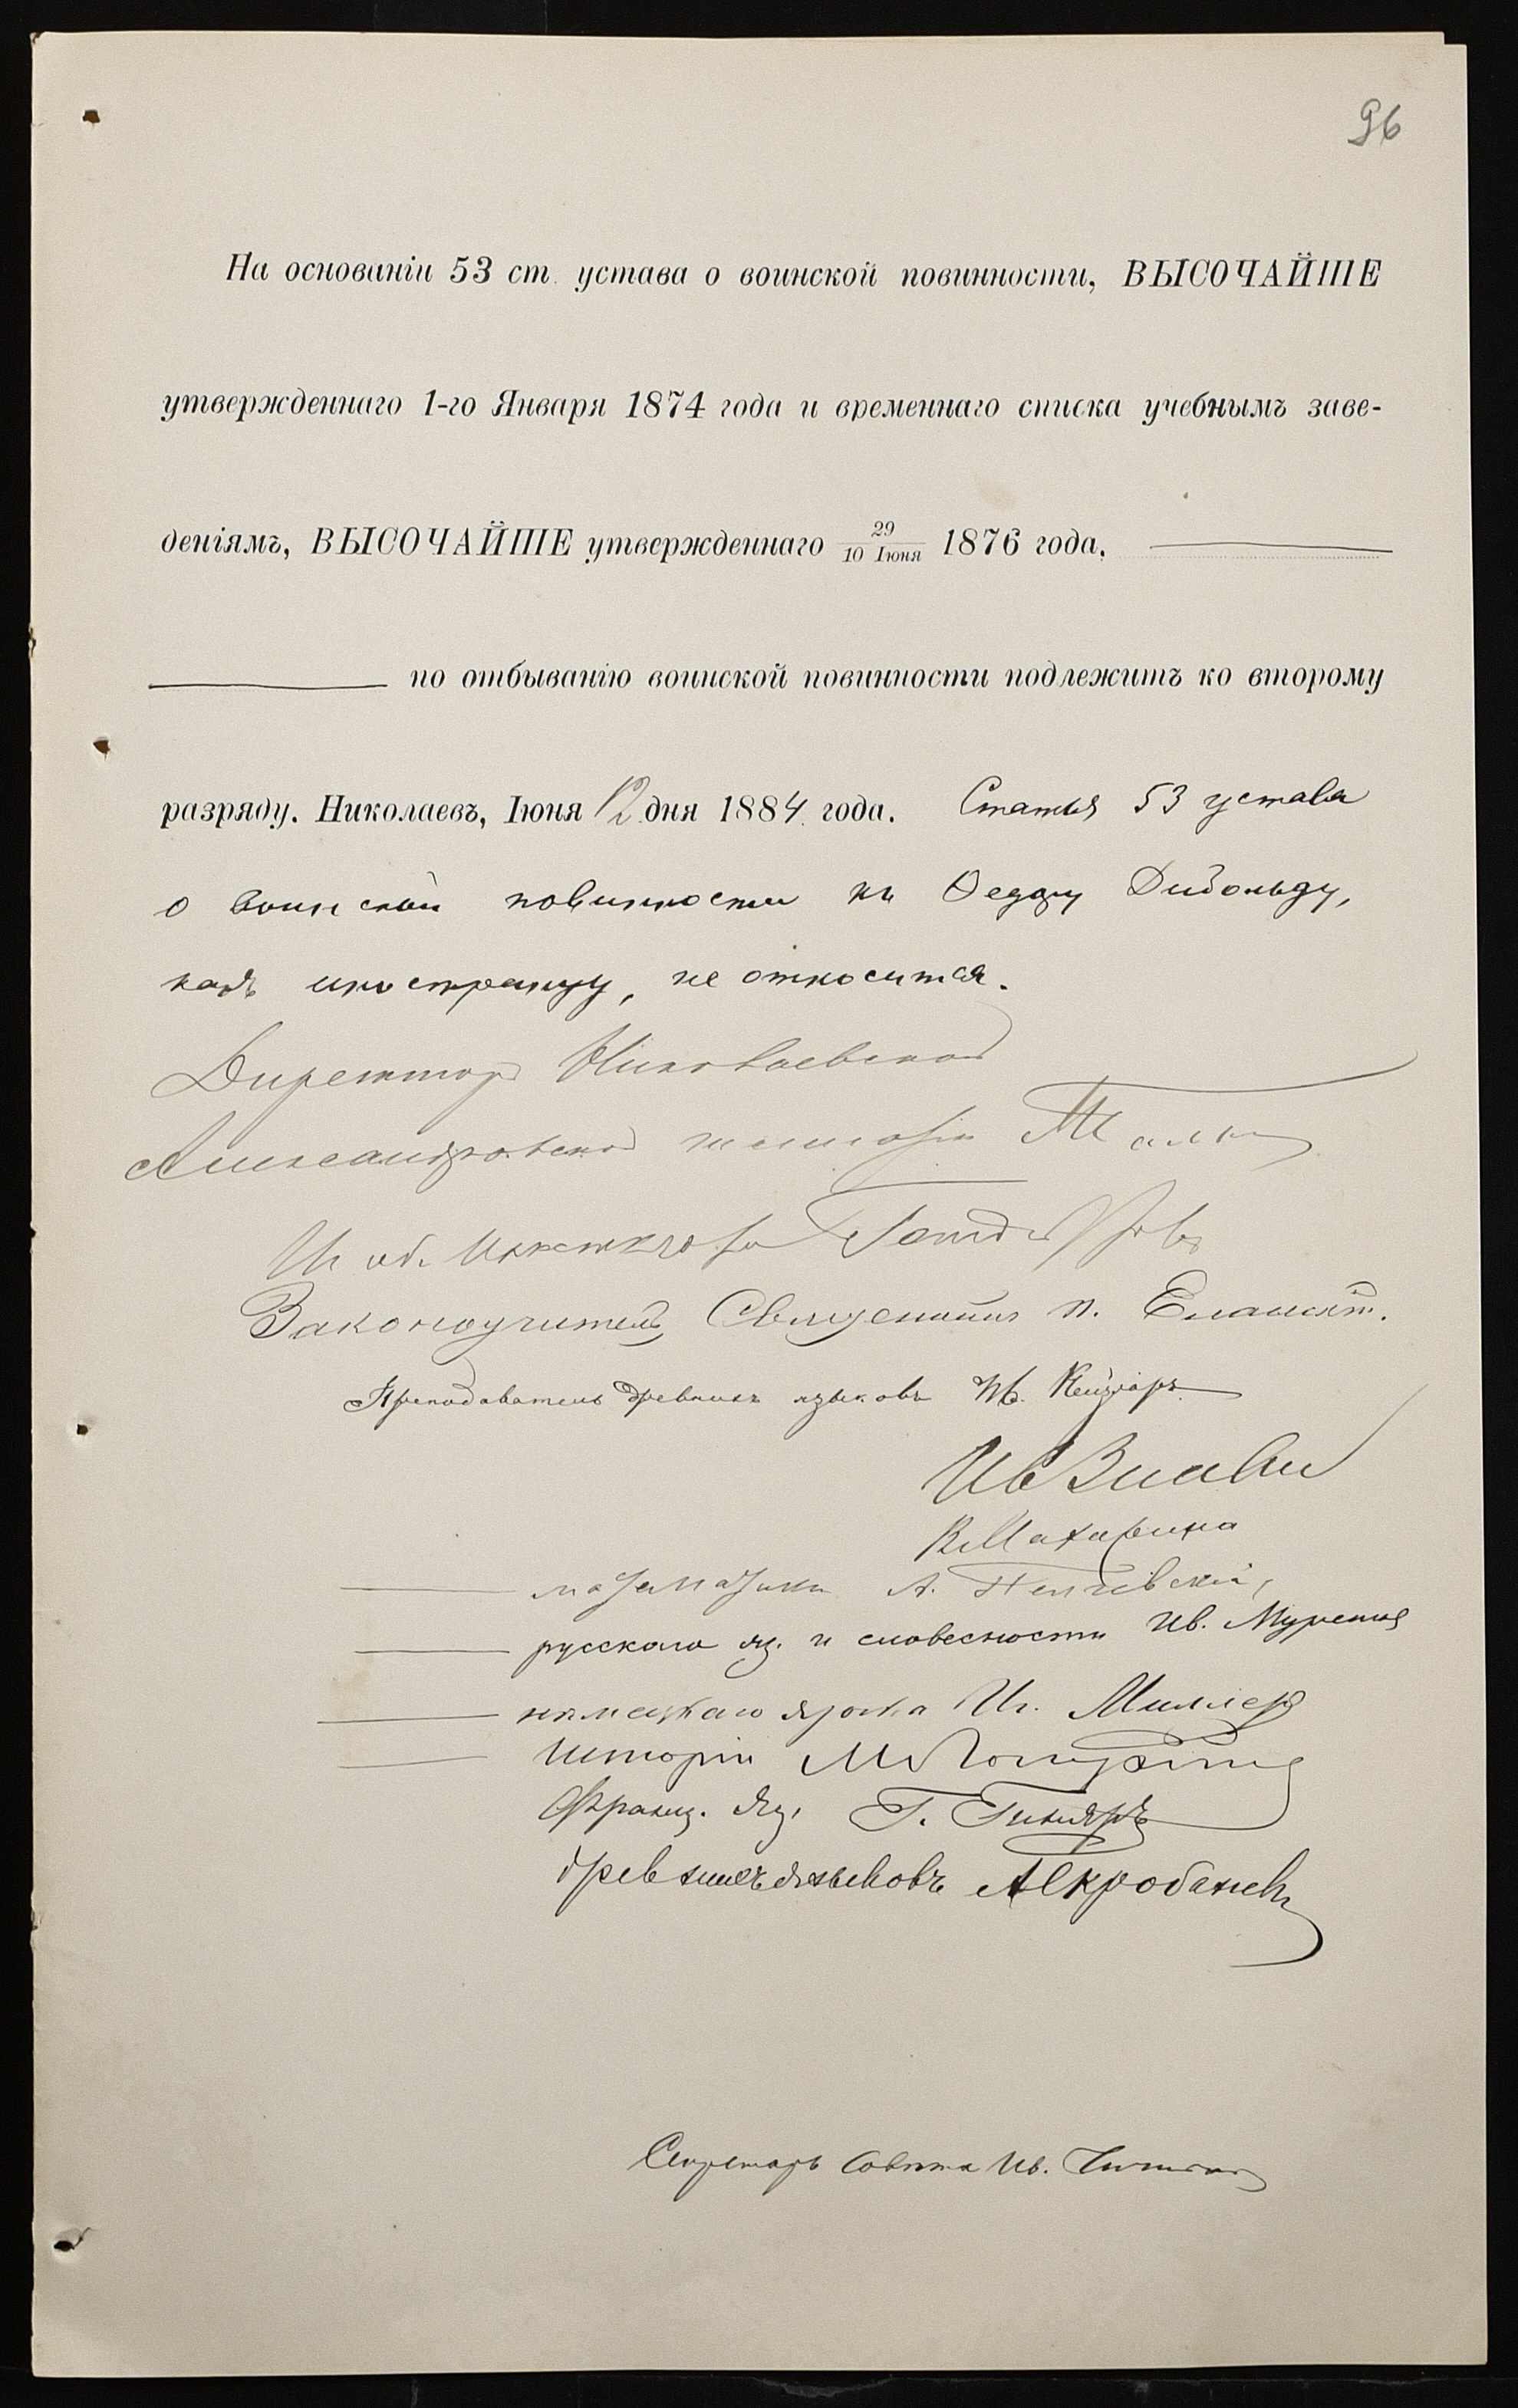 96
На основаніи 53 ст. устава о воинской повинности, ВЫСОЧАЙШЕ
утвержденнаго 1-го Января 1874 года и временнаго списка учебнымъ заве-
деніямъ, ВЫСОЧАЙШЕ утвержденнаго 29/10 Іюня 1876 года,
по отбыванію воинской повинности подлежитъ ко второму
разряду. Николаевъ, Іюня 12 дня 1884 года. Статья 53 устава
о воинской повинности къ Ѳедору Дибольду,
какъ иностранцу, не относится.
Директоръ Николаевской
Александровской гимназіи
И. об. Инспектора
Законоучитель, Священникъ
Преподаватель древнихъ языковъ Ив.
Ив
математики А.
русскаго яз. и словесности Ив.
нѣмецкаго языка Иг. Миллеръ
исторіи
Франц. яз. Г.
древнихъ языковъ
Секретарь Совѣта Ив.